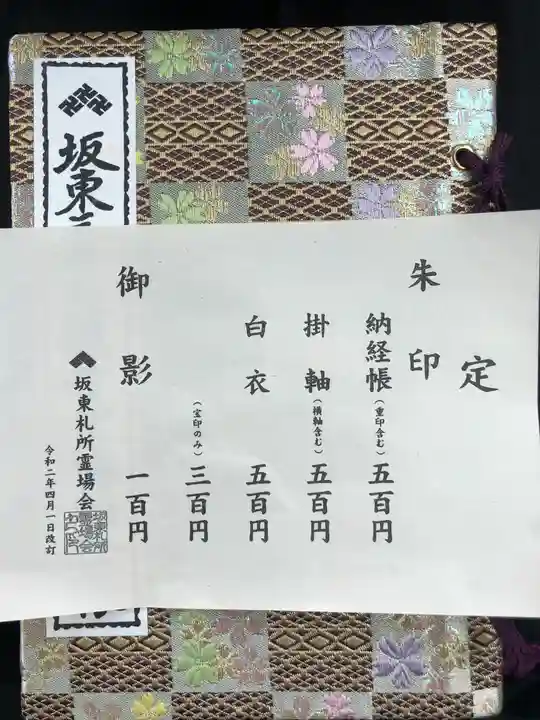 坂東三
定
朱印
納経帳(重印含む)五百円
掛軸(横軸含む)五百円
白衣 五百円
(宝印のみ)三百円
御影 一百円
坂東札所霊場会
令和二年四月一日改訂